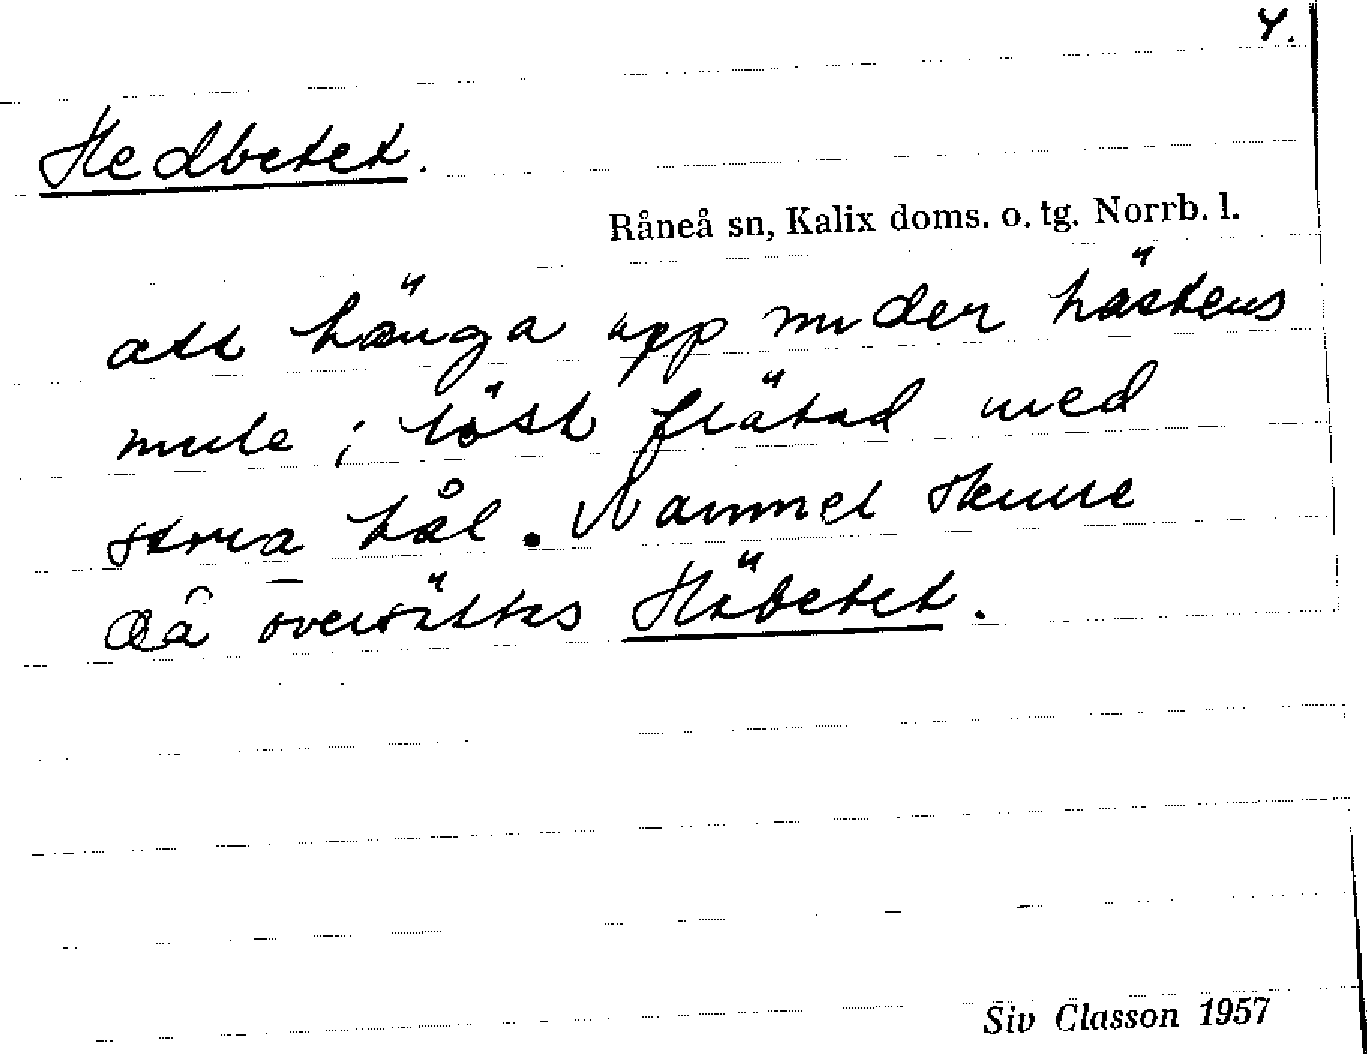 4.
Hedbetet.
Råneå sn, Kalix doms. o. tg. Norrb. l.
att hänga upp under hästens
mule; löst flätad med
stora hål. Namnet skulle
då översättas Höbetet.
Siv Classon 1957